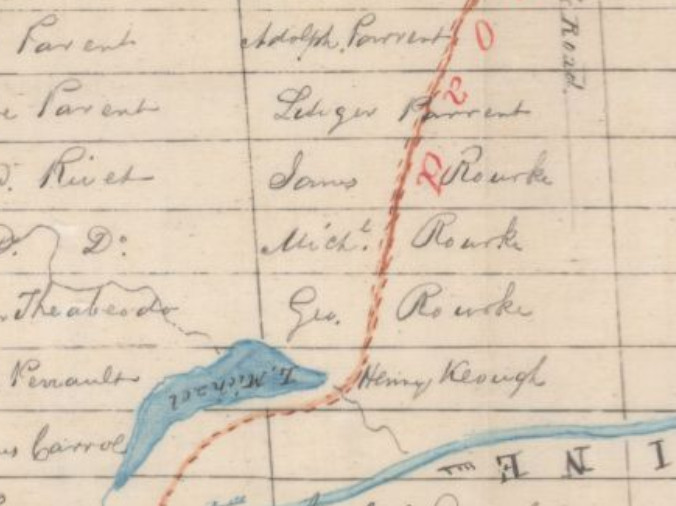 Parent Adolph Parrent
Road.
Parent Ludger Parrent
Rivet James Rourke
Do. Michl. Rourke
Geo. Rourke
Perrault Henry Keough
L. Michael
Carrol
I N E